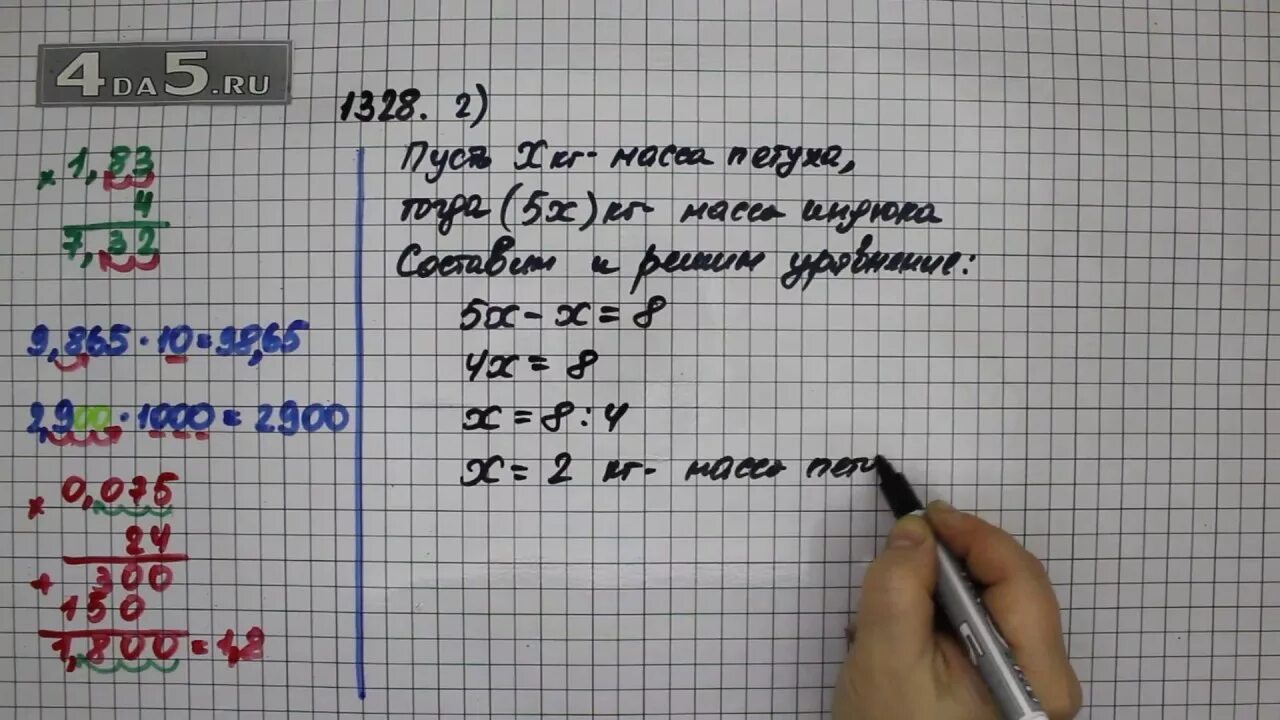 4DA5.RU
1328. 2)
Пусть X кг- масса петуха,
тогда (5x) кг- масса индюка
Составим и решим уравнение:
5x - x = 8
4x = 8
x = 8 : 4
x = 2 кг- масса пету
× 1,83
4
7,32
9,865 · 10 = 98,65
2,900 · 1000 = 2900
× 0,075
24
+ 300
150
1,800 = 1,8